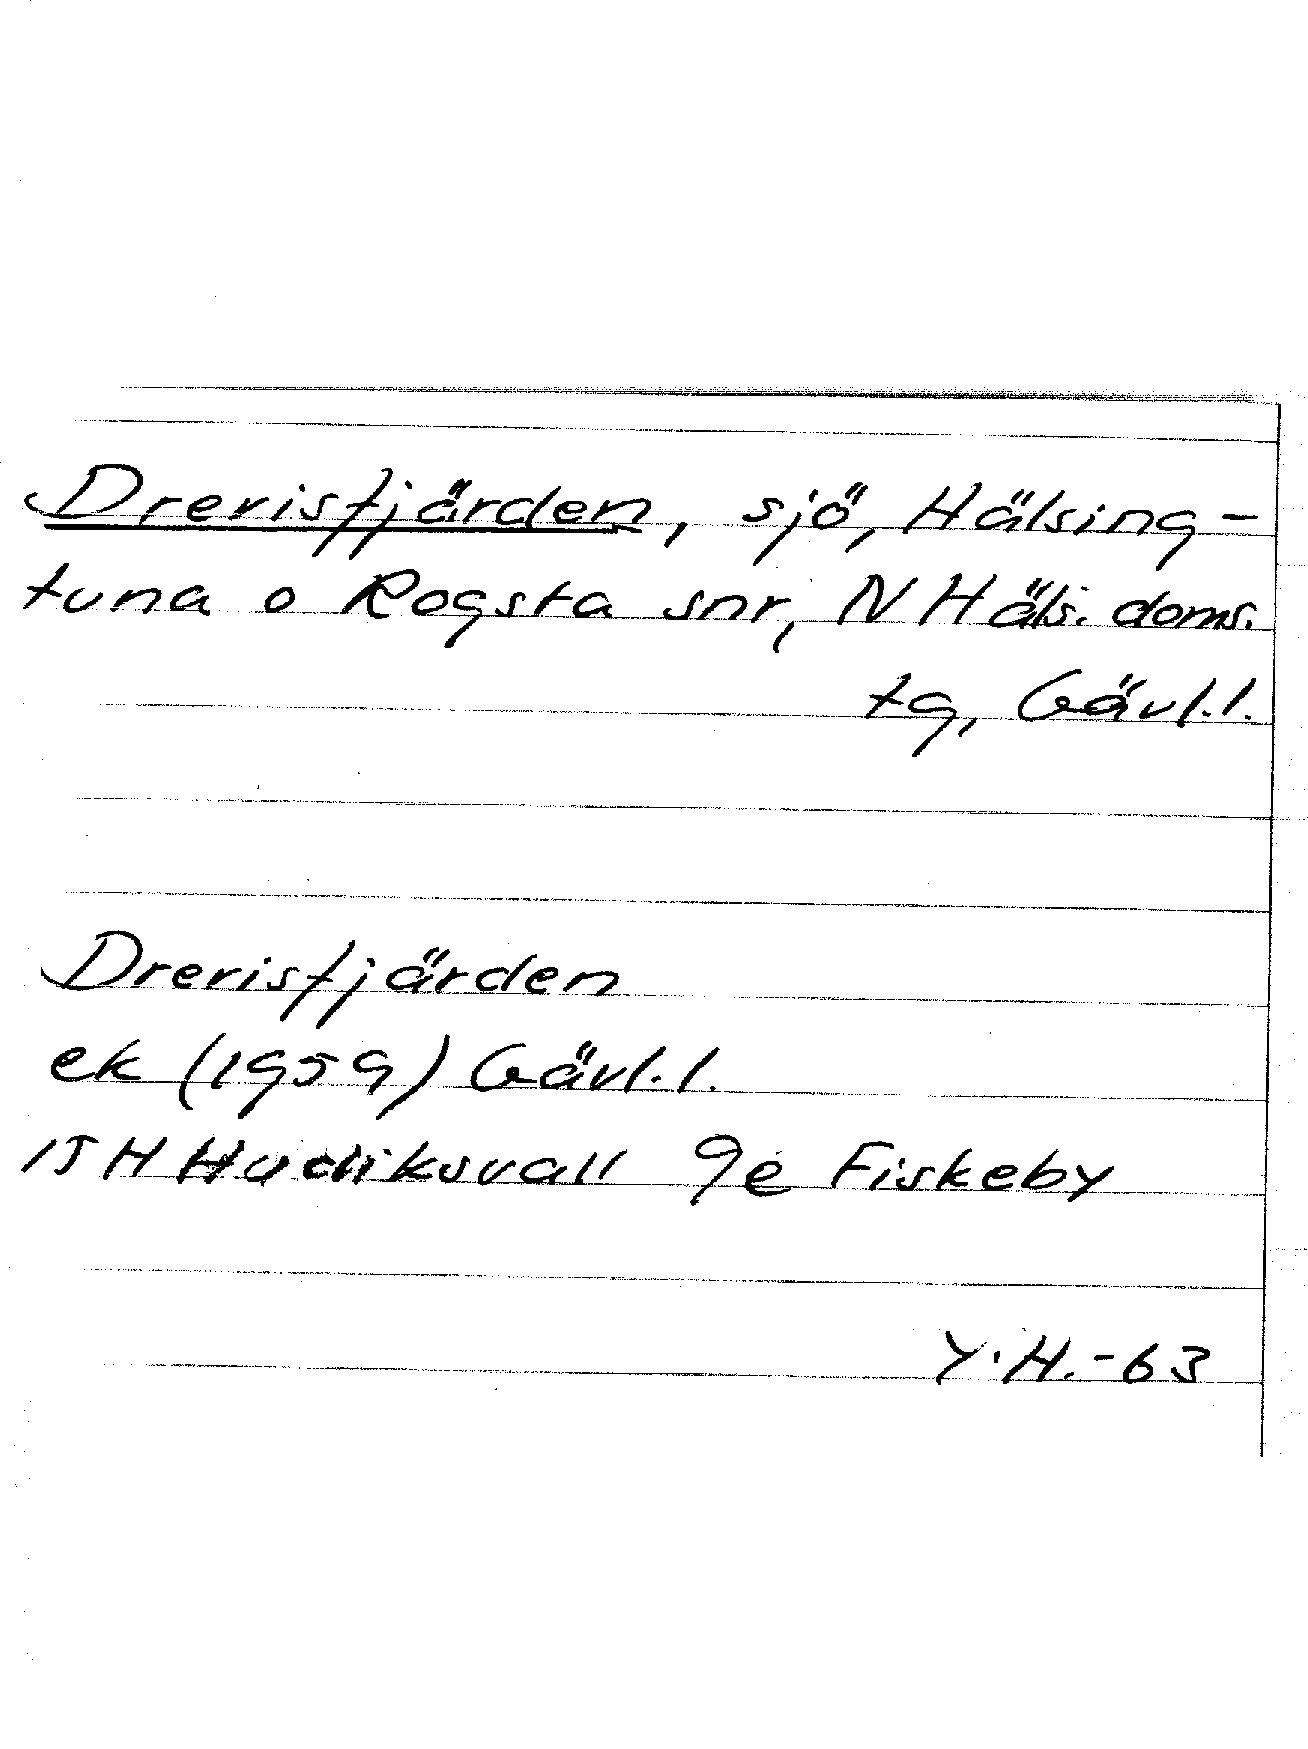 Drevisfjärden, sjö, Hälsing-
tuna o Rogsta snr, N Häls. doms.
tg, Gävl. l.
Drevisfjärden
ek (1959) Gävl. l.
15H Hudiksvall 9e Fiskeby
Y.H.-63